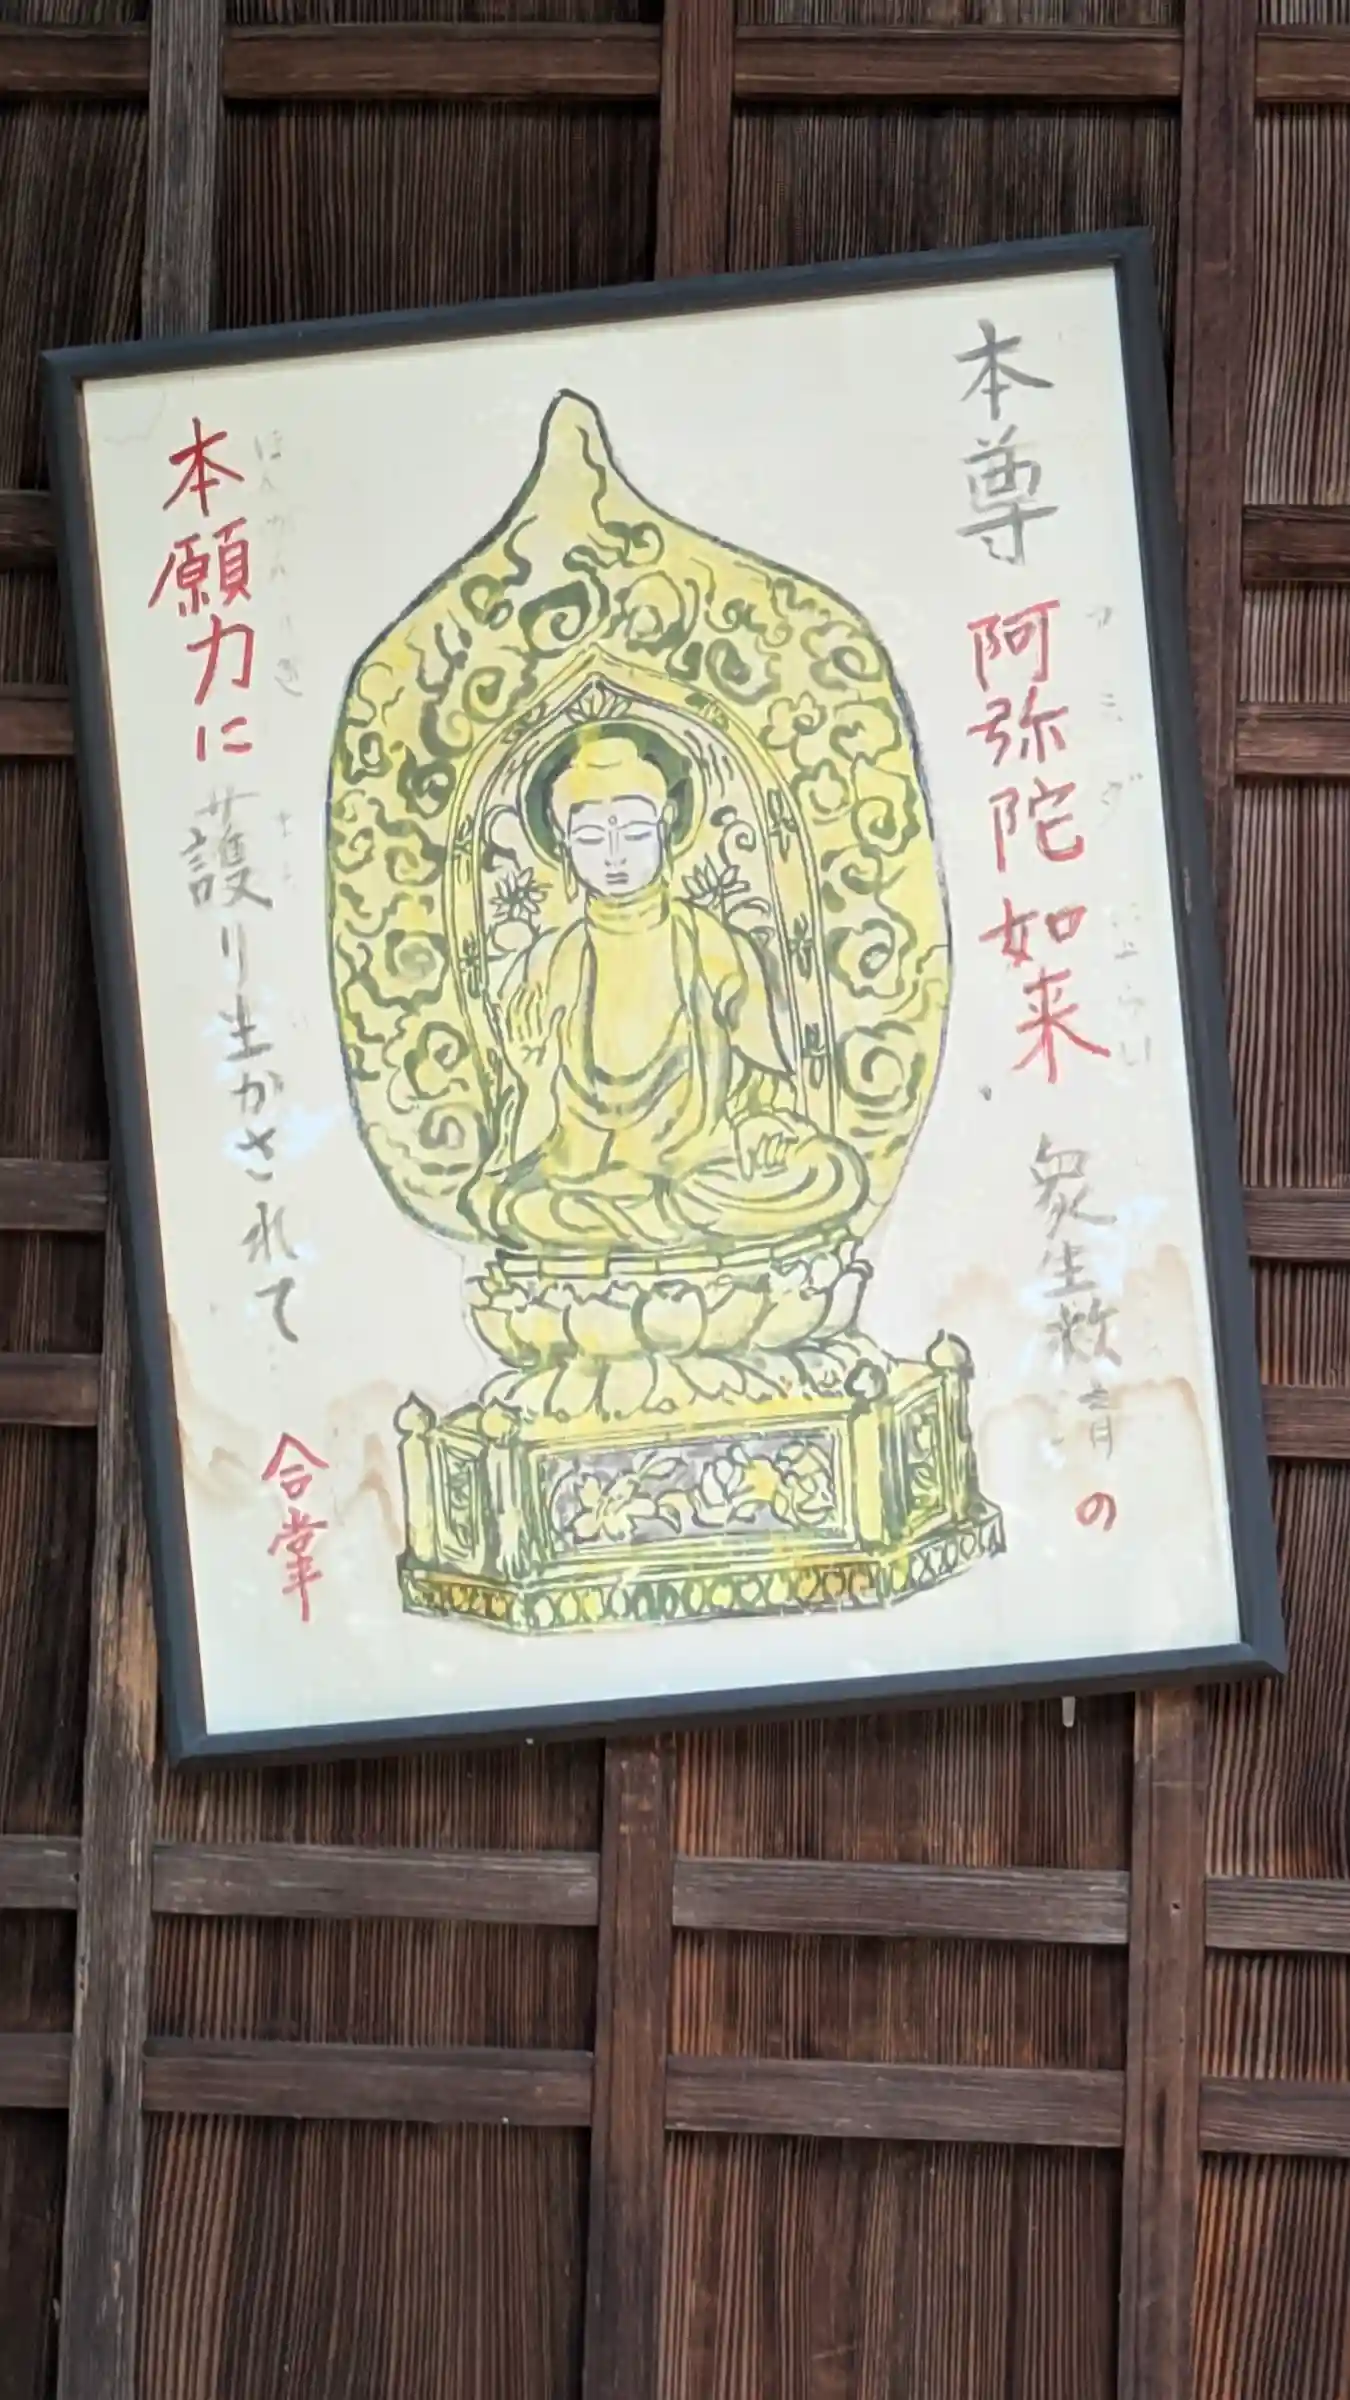 本尊 阿弥陀如来 衆生救済の
アミダ にょらい
本願力に護り生かされて 合掌
ほんがんりき まも い